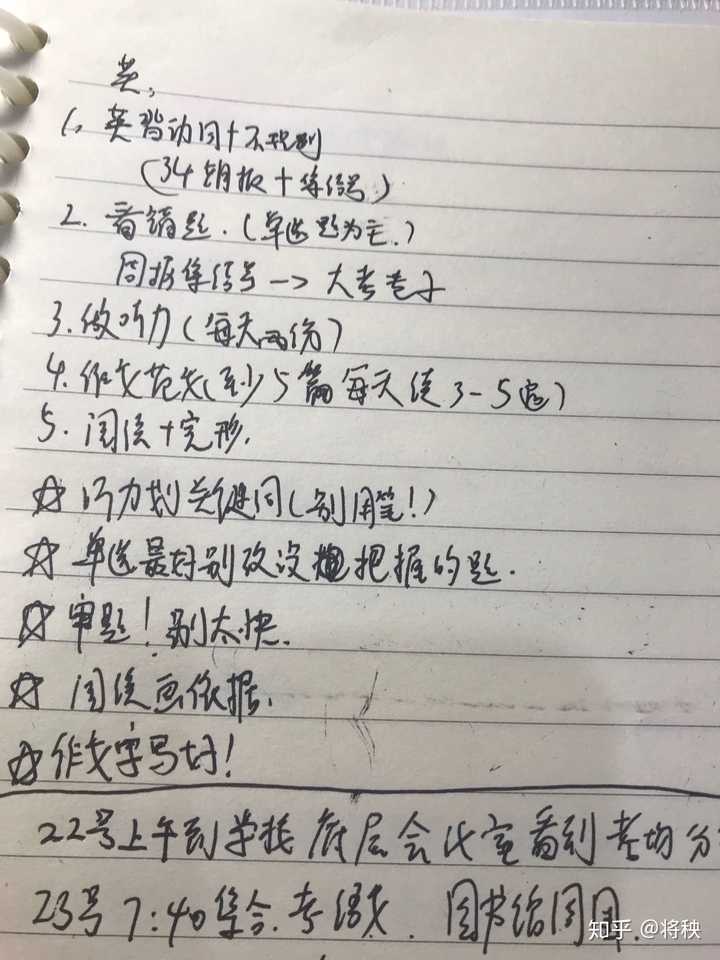 英:
1. 英背动词+不规则
(34期报+等信号)
2. 看错题.(单选题为主.)
周报等信号 -> 大考卷子
3. 做听力(每天两份)
4. 作文范文(至少5篇每天读3-5遍)
5. 阅读+完形.
☆ 听力划关键词(别用笔!)
☆ 单选最好别改没把握的题.
☆ 审题!别太快.
☆ 阅读画依据.
☆ 作文字写好!
22号上午到学校底层会议室看到考场分
23号 7:40集合.考语文. 图书给同
知乎 @将秧